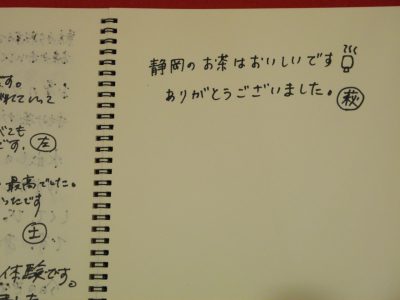 す。
べても
です。左
最高でした。
ったです
土
体験です。
静岡のお茶はおいしいです
ありがとうございました。萩